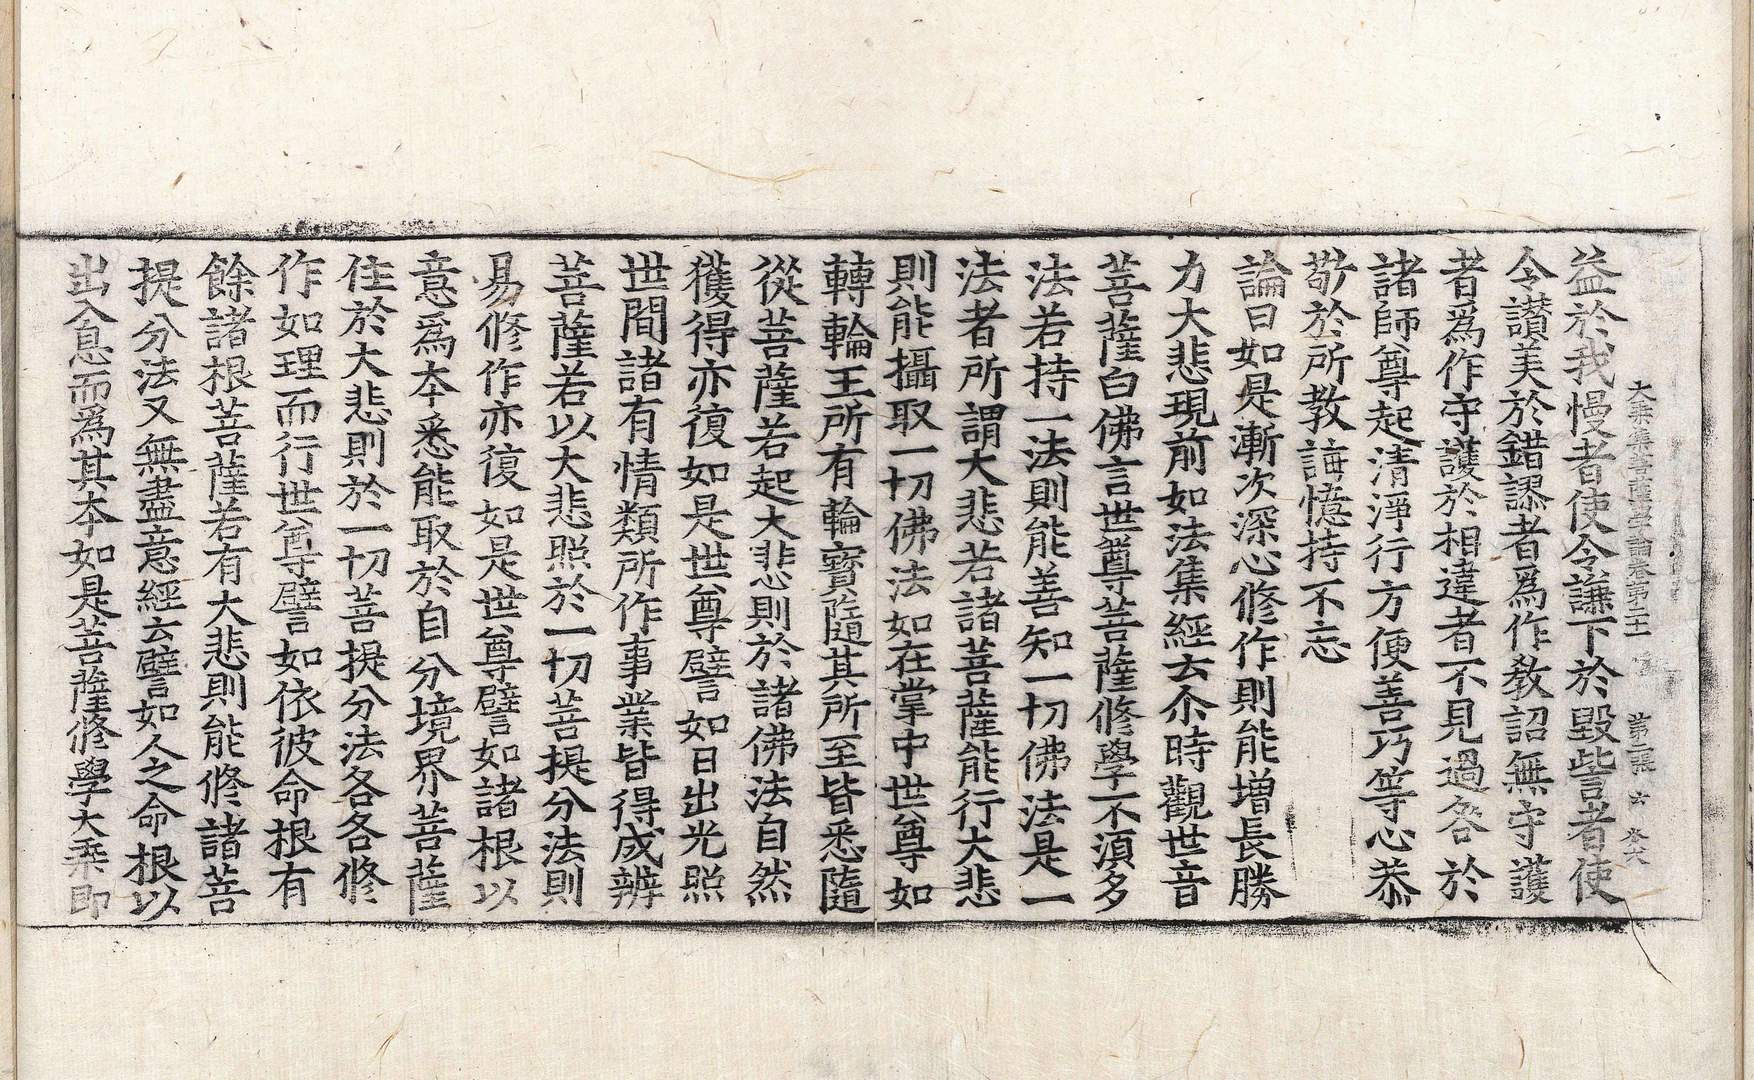 大乗集菩薩學論卷第二十一 第二張
益於我慢者使令謙下於毀訾者使
令讃美於錯謬者爲作教詔無守護
者爲作守護於相違者不見過咎於
諸師尊起清淨行方便善巧等心恭
敬於所教誨憶持不忘
論曰如是漸次深心修作則能增長勝
力大悲現前如法集經云尒時觀世音
菩薩白佛言世尊菩薩修學不須多
法若持一法則能善知一切佛法是一
法者所謂大悲若諸菩薩能行大悲
則能攝取一切佛法如在掌中世尊如
轉輪王所有輪寶隨其所至皆悉隨
從菩薩若起大悲則於諸佛法自然
獲得亦復如是世尊譬如日出光照
世間諸有情類所作事業皆得成辨
菩薩若以大悲照於一切菩提分法則
易修作亦復如是世尊譬如諸根以
意爲本悉能取於自分境界菩薩
住於大悲則於一切菩提分法各各修
作如理而行世尊譬如依彼命根有
餘諸根菩薩若有大悲則能修諸菩
提分法又無盡意經云譬如人之命根以
出入息而爲其本如是菩薩修學大乗即